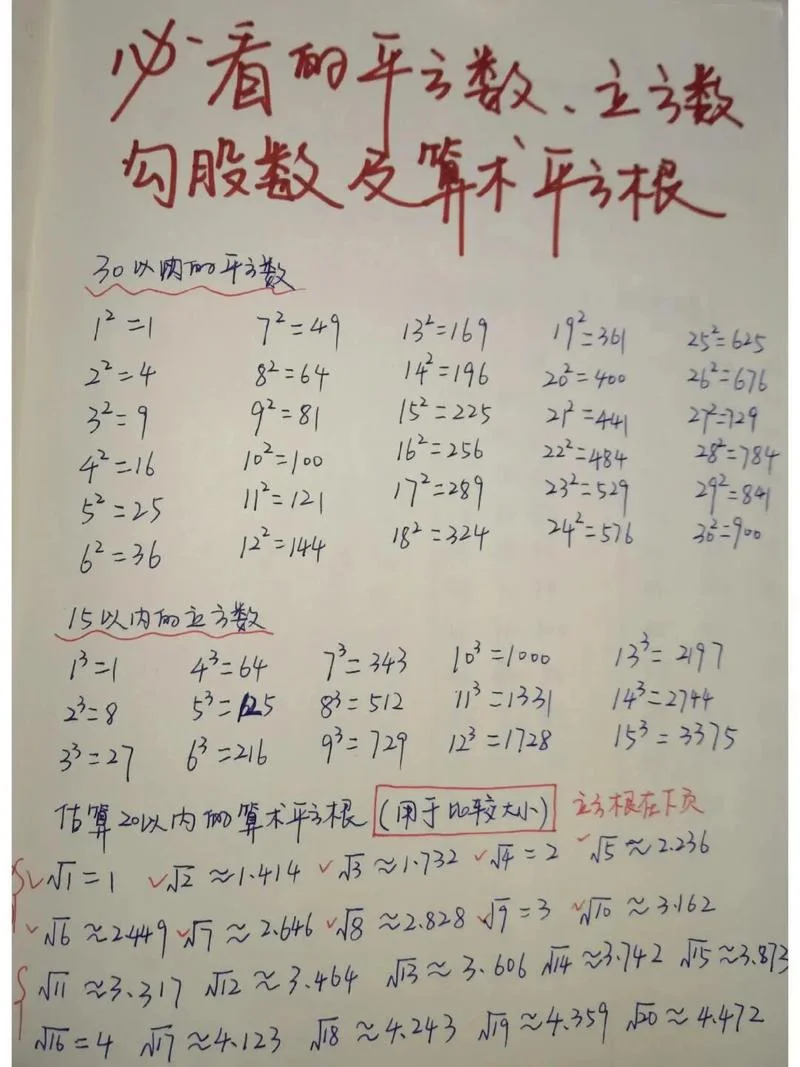 必看的平方数、立方数
勾股数及算术平方根
30以内的平方数
1²=1 7²=49 13²=169 19²=361 25²=625
2²=4 8²=64 14²=196 20²=400 26²=676
3²=9 9²=81 15²=225 21²=441 27²=729
4²=16 10²=100 16²=256 22²=484 28²=784
5²=25 11²=121 17²=289 23²=529 29²=841
6²=36 12²=144 18²=324 24²=576 30²=900
15以内的立方数
1³=1 4³=64 7³=343 10³=1000 13³=2197
2³=8 5³=125 8³=512 11³=1331 14³=2744
3³=27 6³=216 9³=729 12³=1728 15³=3375
估算20以内的算术平方根(用于比较大小) 立方根在下页
√1=1 √2≈1.414 √3≈1.732 √4=2 √5≈2.236
√6≈2.449 √7≈2.646 √8≈2.828 √9=3 √10≈3.162
√11≈3.317 √12≈3.464 √13≈3.606 √14≈3.742 √15≈3.873
√16=4 √17≈4.123 √18≈4.243 √19≈4.359 √20≈4.472